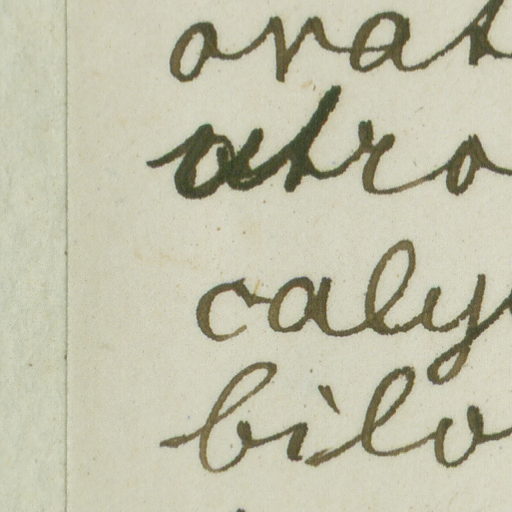 orat
atro
caly
bilo